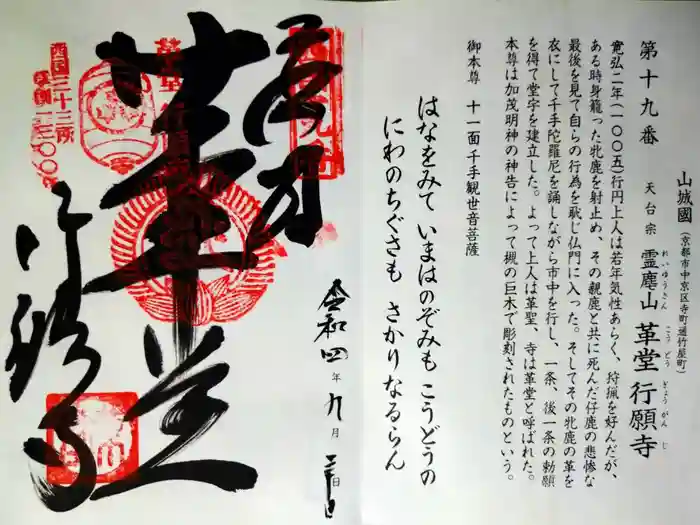 山城國(京都市中京区寺町通竹屋町)
第十九番 天台宗 霊麀山 革堂 行願寺
れいゆうさん こうどう ぎょうがんじ
寛弘二年(一〇〇五)行円上人は若年気性あらく、狩猟を好んだが、
ある時身籠った牝鹿を射止め、その親鹿と共に死んだ仔鹿の悲惨な
最後を見て自らの行為を恥じ仏門に入った。そしてその牝鹿の革を
衣にして千手陀羅尼を誦しながら市中を行し、一条、後一条の勅願
を得て堂宇を建立した。よって上人は革聖、寺は革堂と呼ばれた。
本尊は加茂明神の神告によって槻の巨木で彫刻されたものという。
御本尊 十一面千手観世音菩薩
はなをみて いまはのぞみも こうどうの
にわのちぐさも さかりなるらん
令和四年九月
奉拝
革堂
行願寺
西国三十三所
草創一三〇〇年